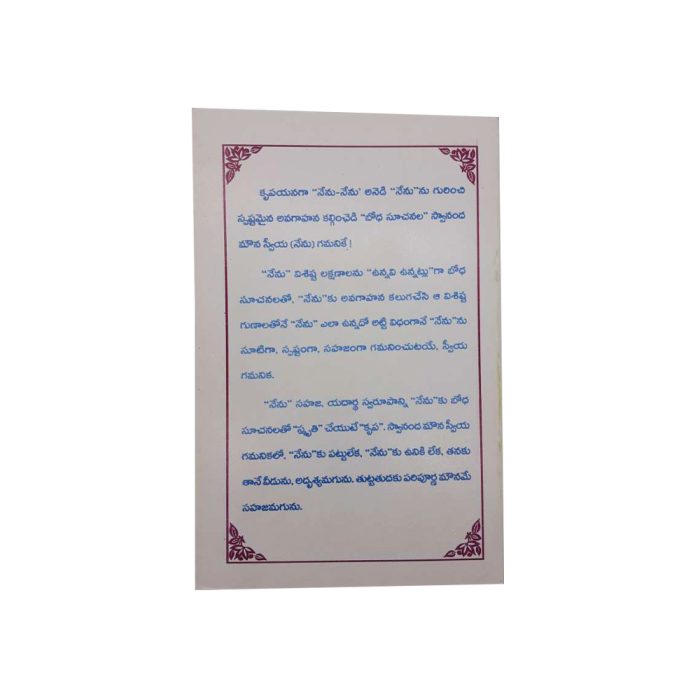 కృపయనగా “నేను-నేను' అనెడి “నేను”ను గురించి
స్పష్టమైన అవగాహన కల్గించెడి “బోధ సూచనల” స్వానంద
మౌన స్వీయ (నేను) గమనికే!
“నేను” విశిష్ట లక్షణాలను “ఉన్నవి ఉన్నట్లు”గా బోధ
సూచనలతో, “నేను”కు అవగాహన కలుగచేసి ఆ విశిష్ట
గుణాలతోనే “నేను” ఎలా ఉన్నదో అట్టి విధంగానే “నేను”ను
సూటిగా, స్పష్టంగా, సహజంగా గమనించుటయే, స్వీయ
గమనిక.
“నేను” సహజ, యదార్థ స్వరూపాన్ని “నేను”కు బోధ
సూచనలతో “స్మృతి” చేయుటే “కృప”. స్వానంద మౌన స్వీయ
గమనికలో, “నేను”కు పట్టులేక, “నేను”కు ఉనికి లేక, తనకు
తానే వీడును, అదృశ్యమగును. తుట్టతుదకు పరిపూర్ణ మౌనమే
సహజమగును.